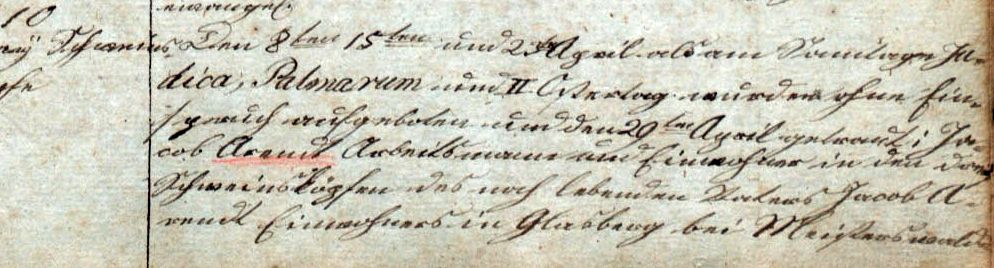 evangel.
10
Schweins Den 8ten 15ten und 23ten April als am Sonntage Ju-
dica, Palmarum und II Ostertag wurden ohne Ein-
spruch aufgeboten und den 29ten April getraut: Ja-
cob Arendt Arbeitsmann und Einwohner in den drei
Schweinsköpfen des noch lebenden Vaters Jacob A-
rendt Einwohners in Glasberg bei Meisterswalde